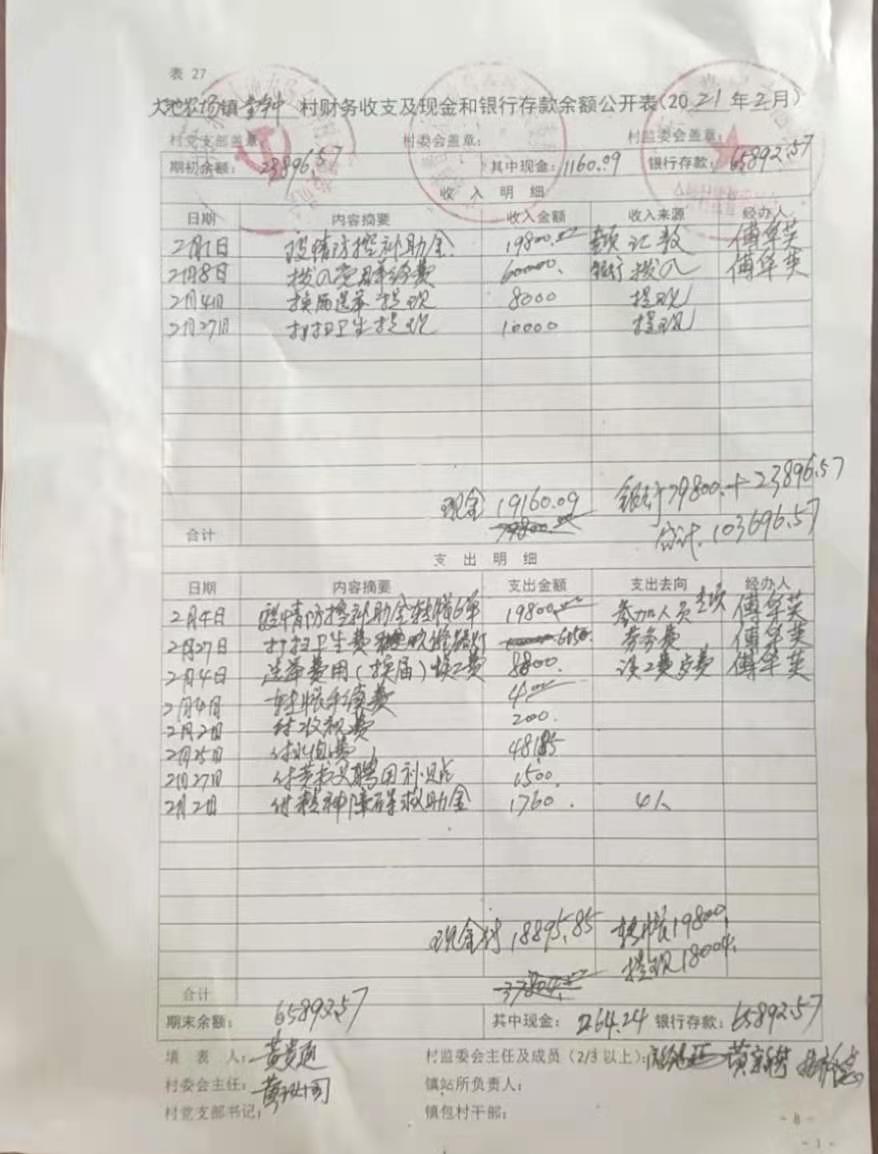 表 27
大池农场镇 村财务收支及现金和银行存款余额公开表(2021年2月)
村党支部盖章: 村委会盖章: 村监委会盖章:
期初余额: 23896.57 其中现金: 1160.09 银行存款: 65892.57
收 入 明 细
日期 内容摘要 收入金额 收入来源 经办人
2月1日 疫情防控补助金 19800.00 傅华英
2月8日 拨入党群经费 60000. 银行拨入 傅华英
2月4日 换届选举提现 8000 提现
2月27日 打扫卫生提现 10000 提现
现金 19160.09 银行79800.+23896.57
合计 79800.00 合计.103696.57
支 出 明 细
日期 内容摘要 支出金额 支出去向 经办人
2月4日 疫情防控补助金转账6单 19800.00 参加人员 傅华英
2月27日 打扫卫生费 6150. 劳务费 傅华英
2月4日 选举费用(换届)误工费 8800. 误工费 傅华英
2月4日 转账手续费 4.00
2月2日 付收视费 200.
2月25日 付电费 481.85
2月27日 1500.
2月2日 付精神障碍救助金 1760. 4人
现金付 18895.85 转账19800.
提现18004.
合计 37804.00
期末余额: 65892.57 其中现金: 264.24 银行存款: 65892.57
填 表 人: 村监委会主任及成员(2/3以上):
村委会主任: 镇站所负责人:
村党支部书记: 镇包村干部:
- 8 -
- 1 -